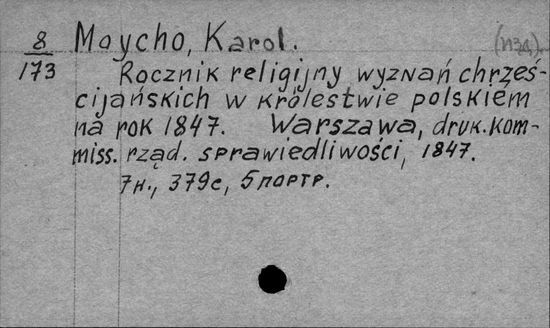 8 Maycho, Karol.
173 Rocznik religijny wyznań chrześ-
cijańskich w królestwie polskiem
na rok 1847. Warszawa, druk. kom-
miss. rząd. sprawiedliwości, 1847.
7н., 379с, 5портр.